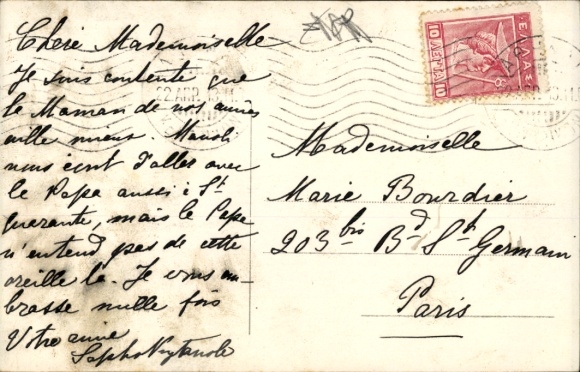 Chère Mademoiselle
Je suis contente que
la Maman de nos amies
aille mieux. Manoli
nous écrit d'aller avec
le Papa aussi à St
Quarante, mais le Papa
n'entend pas de cette
oreille là. Je vous em-
brasse mille fois
Votre amie
Sapho
ΕΛΛΑΣ
10 ΛΕΠΤΑ 10
22 ΑΠΡ
Mademoiselle
Marie Bourdier
203 bis Bd St Germain
Paris